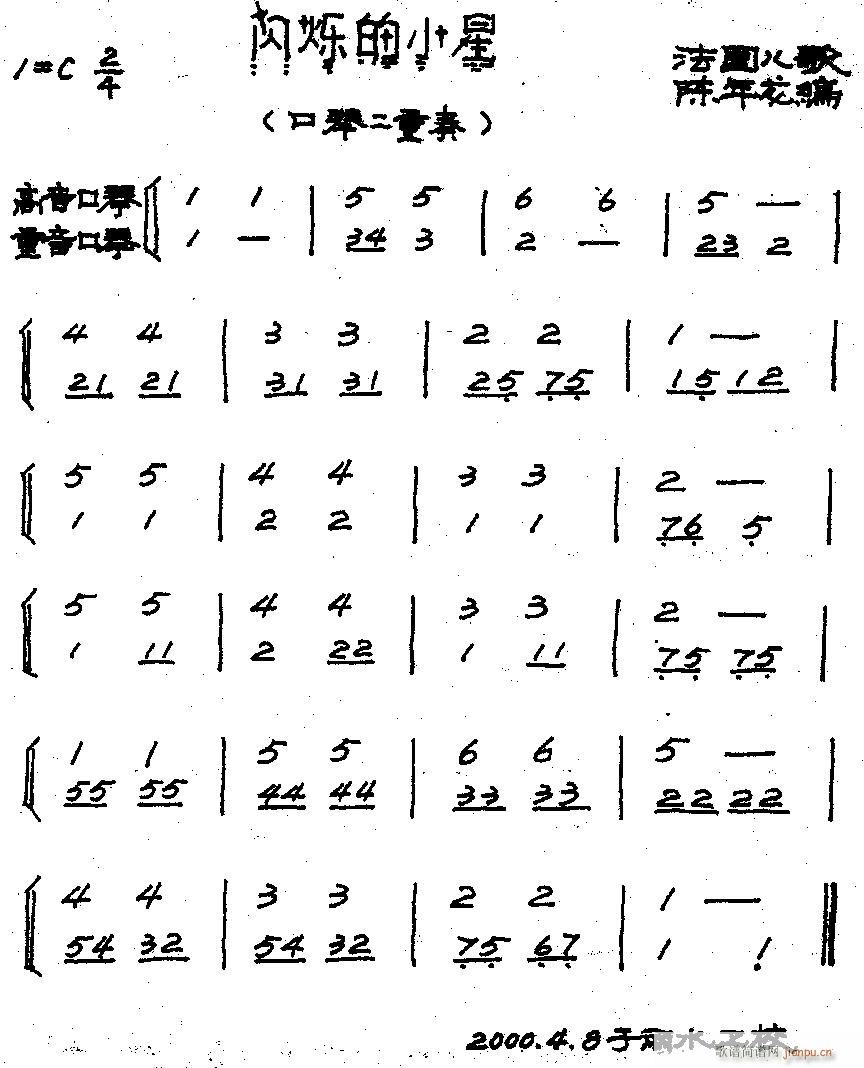 闪烁的小星
1=C 2/4
法国儿歌
陈年花编
(口琴二重奏)
高音口琴 1 1 | 5 5 | 6 6 | 5 — |
重音口琴 1 — | 34 3 | 2 — | 23 2 |
4 4 | 3 3 | 2 2 | 1 — |
21 21 | 31 31 | 25 75 | 15 12 |
5 5 | 4 4 | 3 3 | 2 — |
1 1 | 2 2 | 1 1 | 76 5 |
5 5 | 4 4 | 3 3 | 2 — |
1 11 | 2 22 | 1 11 | 75 75 |
1 1 | 5 5 | 6 6 | 5 — |
55 55 | 44 44 | 33 33 | 22 22 |
4 4 | 3 3 | 2 2 | 1 — ‖
54 32 | 54 32 | 75 67 | 1 1 ‖
2000.4.8于
歌谱简谱网 jianpu.cn